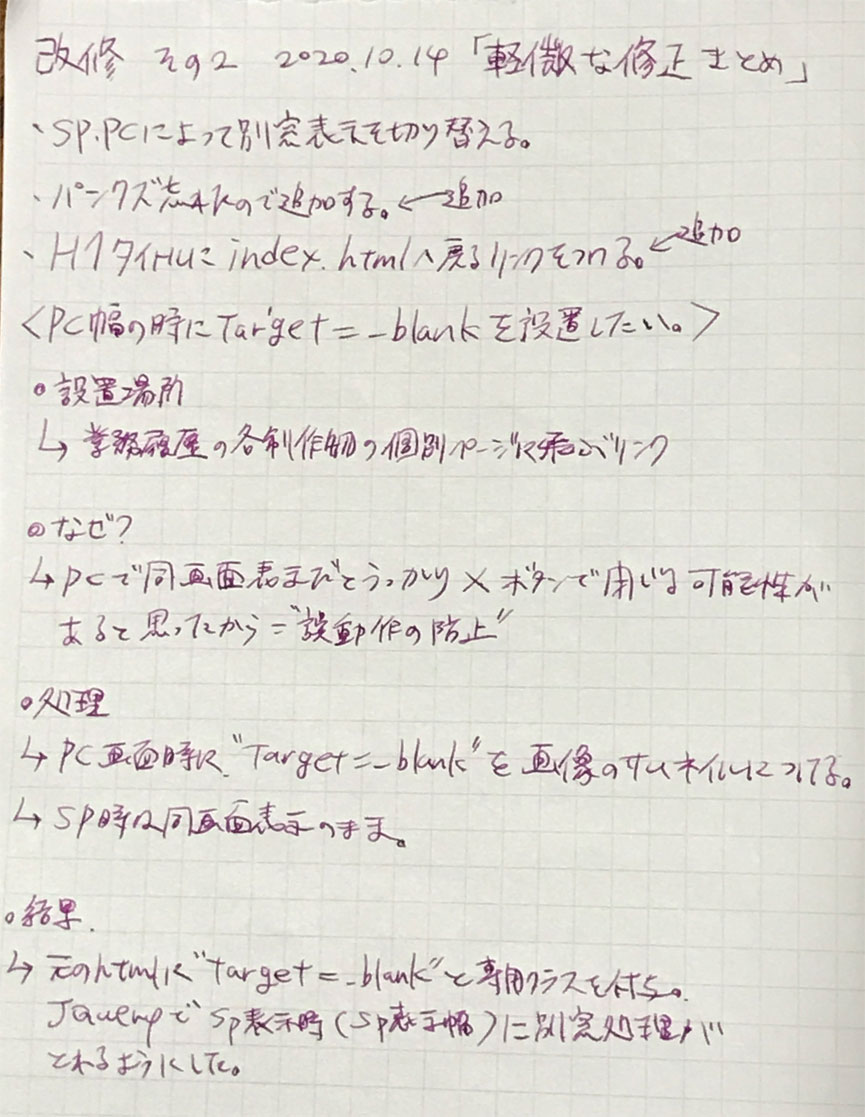 改修 その2 2020.10.14「軽微な修正まとめ」
・SP.PCによって別窓表示を切り替える。
・パンクズ忘れたので追加する。←追加
・H1タイトルにindex.htmlへ戻るリンクをつける。←追加
<PC幅の時にTarget=_blankを設置したい。>
○設置場所
↳業務履歴の各制作物の個別ページに飛ぶリンク
○なぜ?
↳PCで同画面表示だとうっかり×ボタンで閉じる可能性が
あると思ったから="誤動作の防止"
○処理
↳PC画面時に"Target=_blank"を画像のサムネイルにつける。
↳SP時は同画面表示のまま。
○結果.
↳元のhtmlに"Target=_blank"と専用クラスを付与。
JqueryでSp表示時(Sp表示幅)に別窓処理が
とれるようにした。